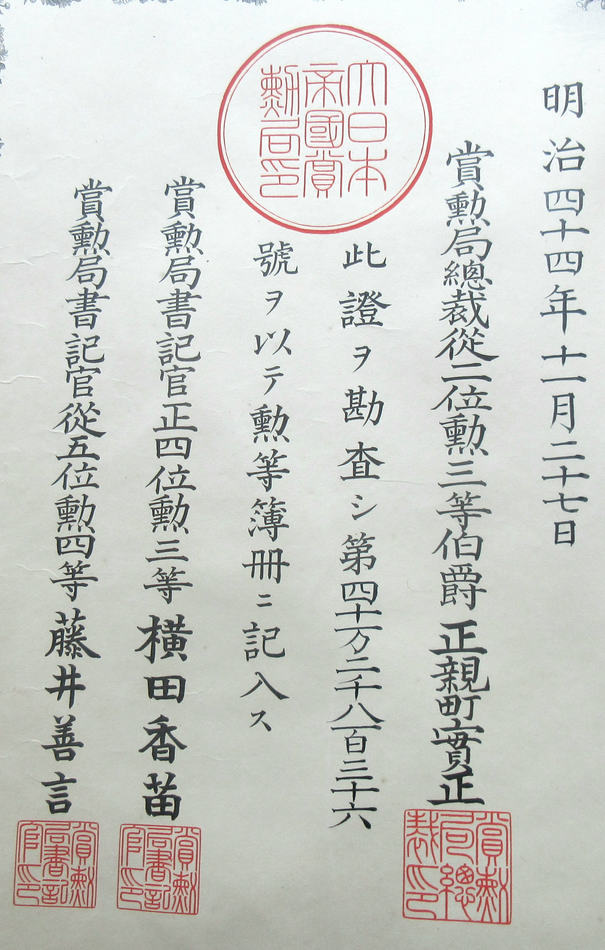 明治四十四年十一月二十七日
賞勲局總裁從二位勲三等伯爵正親町實正
賞勲局總裁印
大日本帝國賞勲局印
此證ヲ勘査シ第四十一万二千八百三十六
號ヲ以テ勲等簿冊ニ記入ス
賞勲局書記官正四位勲三等横田香苗
賞勲局書記官印
賞勲局書記官從五位勲四等藤井善言
賞勲局書記官印